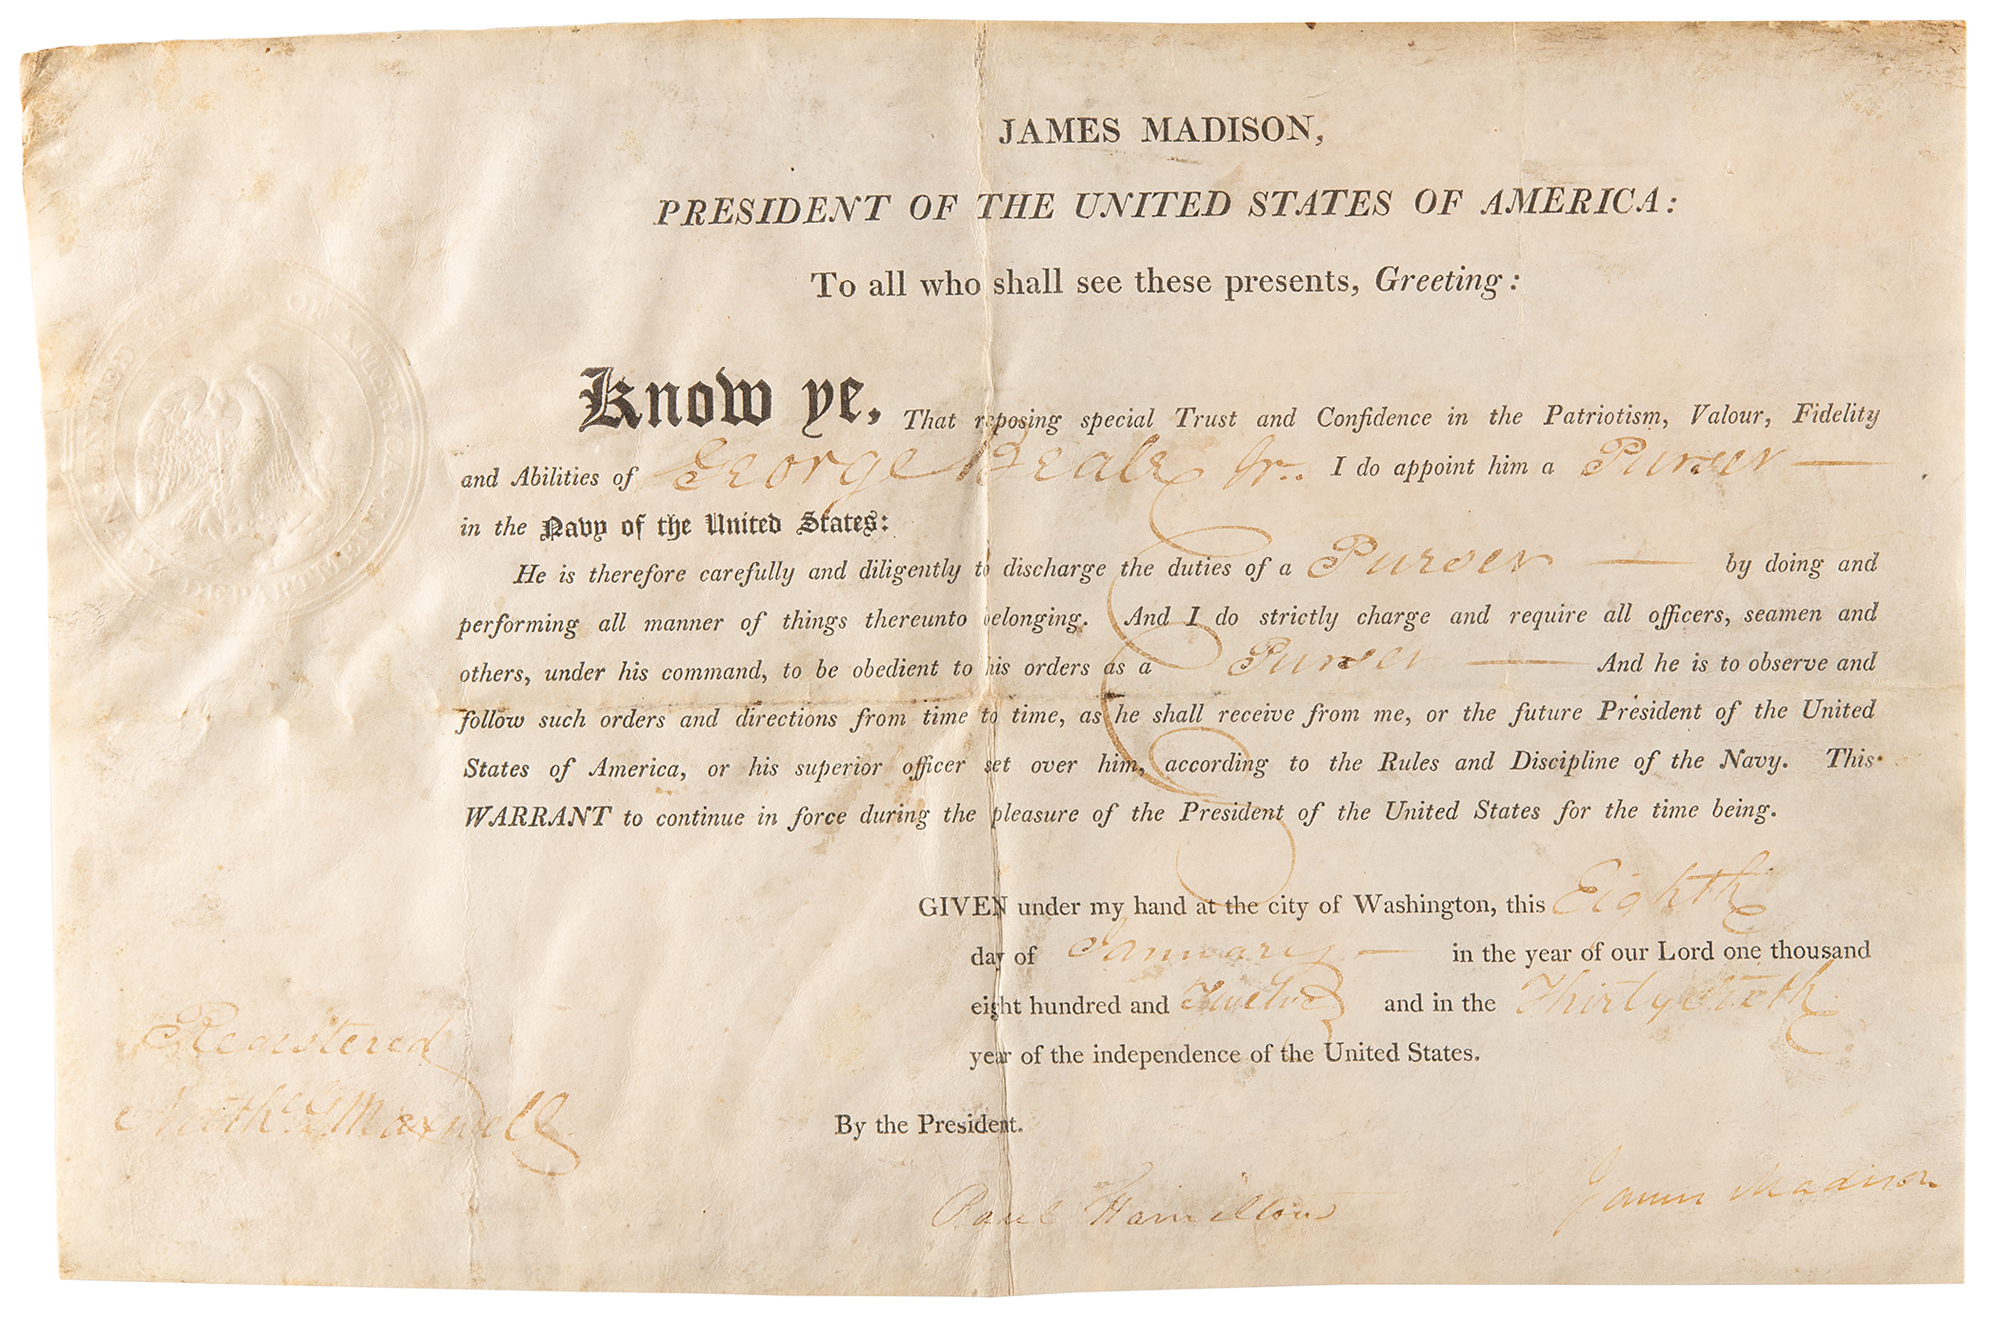 JAMES MADISON,
PRESIDENT OF THE UNITED STATES OF AMERICA:
To all who shall see these presents, Greeting:
Know ye, That reposing special Trust and Confidence in the Patriotism, Valour, Fidelity
and Abilities of George Beale Jr.. I do appoint him a Purser —
in the Navy of the United States:
He is therefore carefully and diligently to discharge the duties of a Purser — by doing and
performing all manner of things thereunto belonging. And I do strictly charge and require all officers, seamen and
others, under his command, to be obedient to his orders as a Purser — And he is to observe and
follow such orders and directions from time to time, as he shall receive from me, or the future President of the United
States of America, or his superior officer set over him, according to the Rules and Discipline of the Navy. This
WARRANT to continue in force during the pleasure of the President of the United States for the time being.
GIVEN under my hand at the city of Washington, this Eighth
day of January — in the year of our Lord one thousand
eight hundred and Twelve and in the Thirtysixth
year of the independence of the United States.
By the President.
Registered
Nath. Maxwell
Paul Hamilton
James Madison
UNITED STATES OF AMERICA
NAVY DEPARTMENT